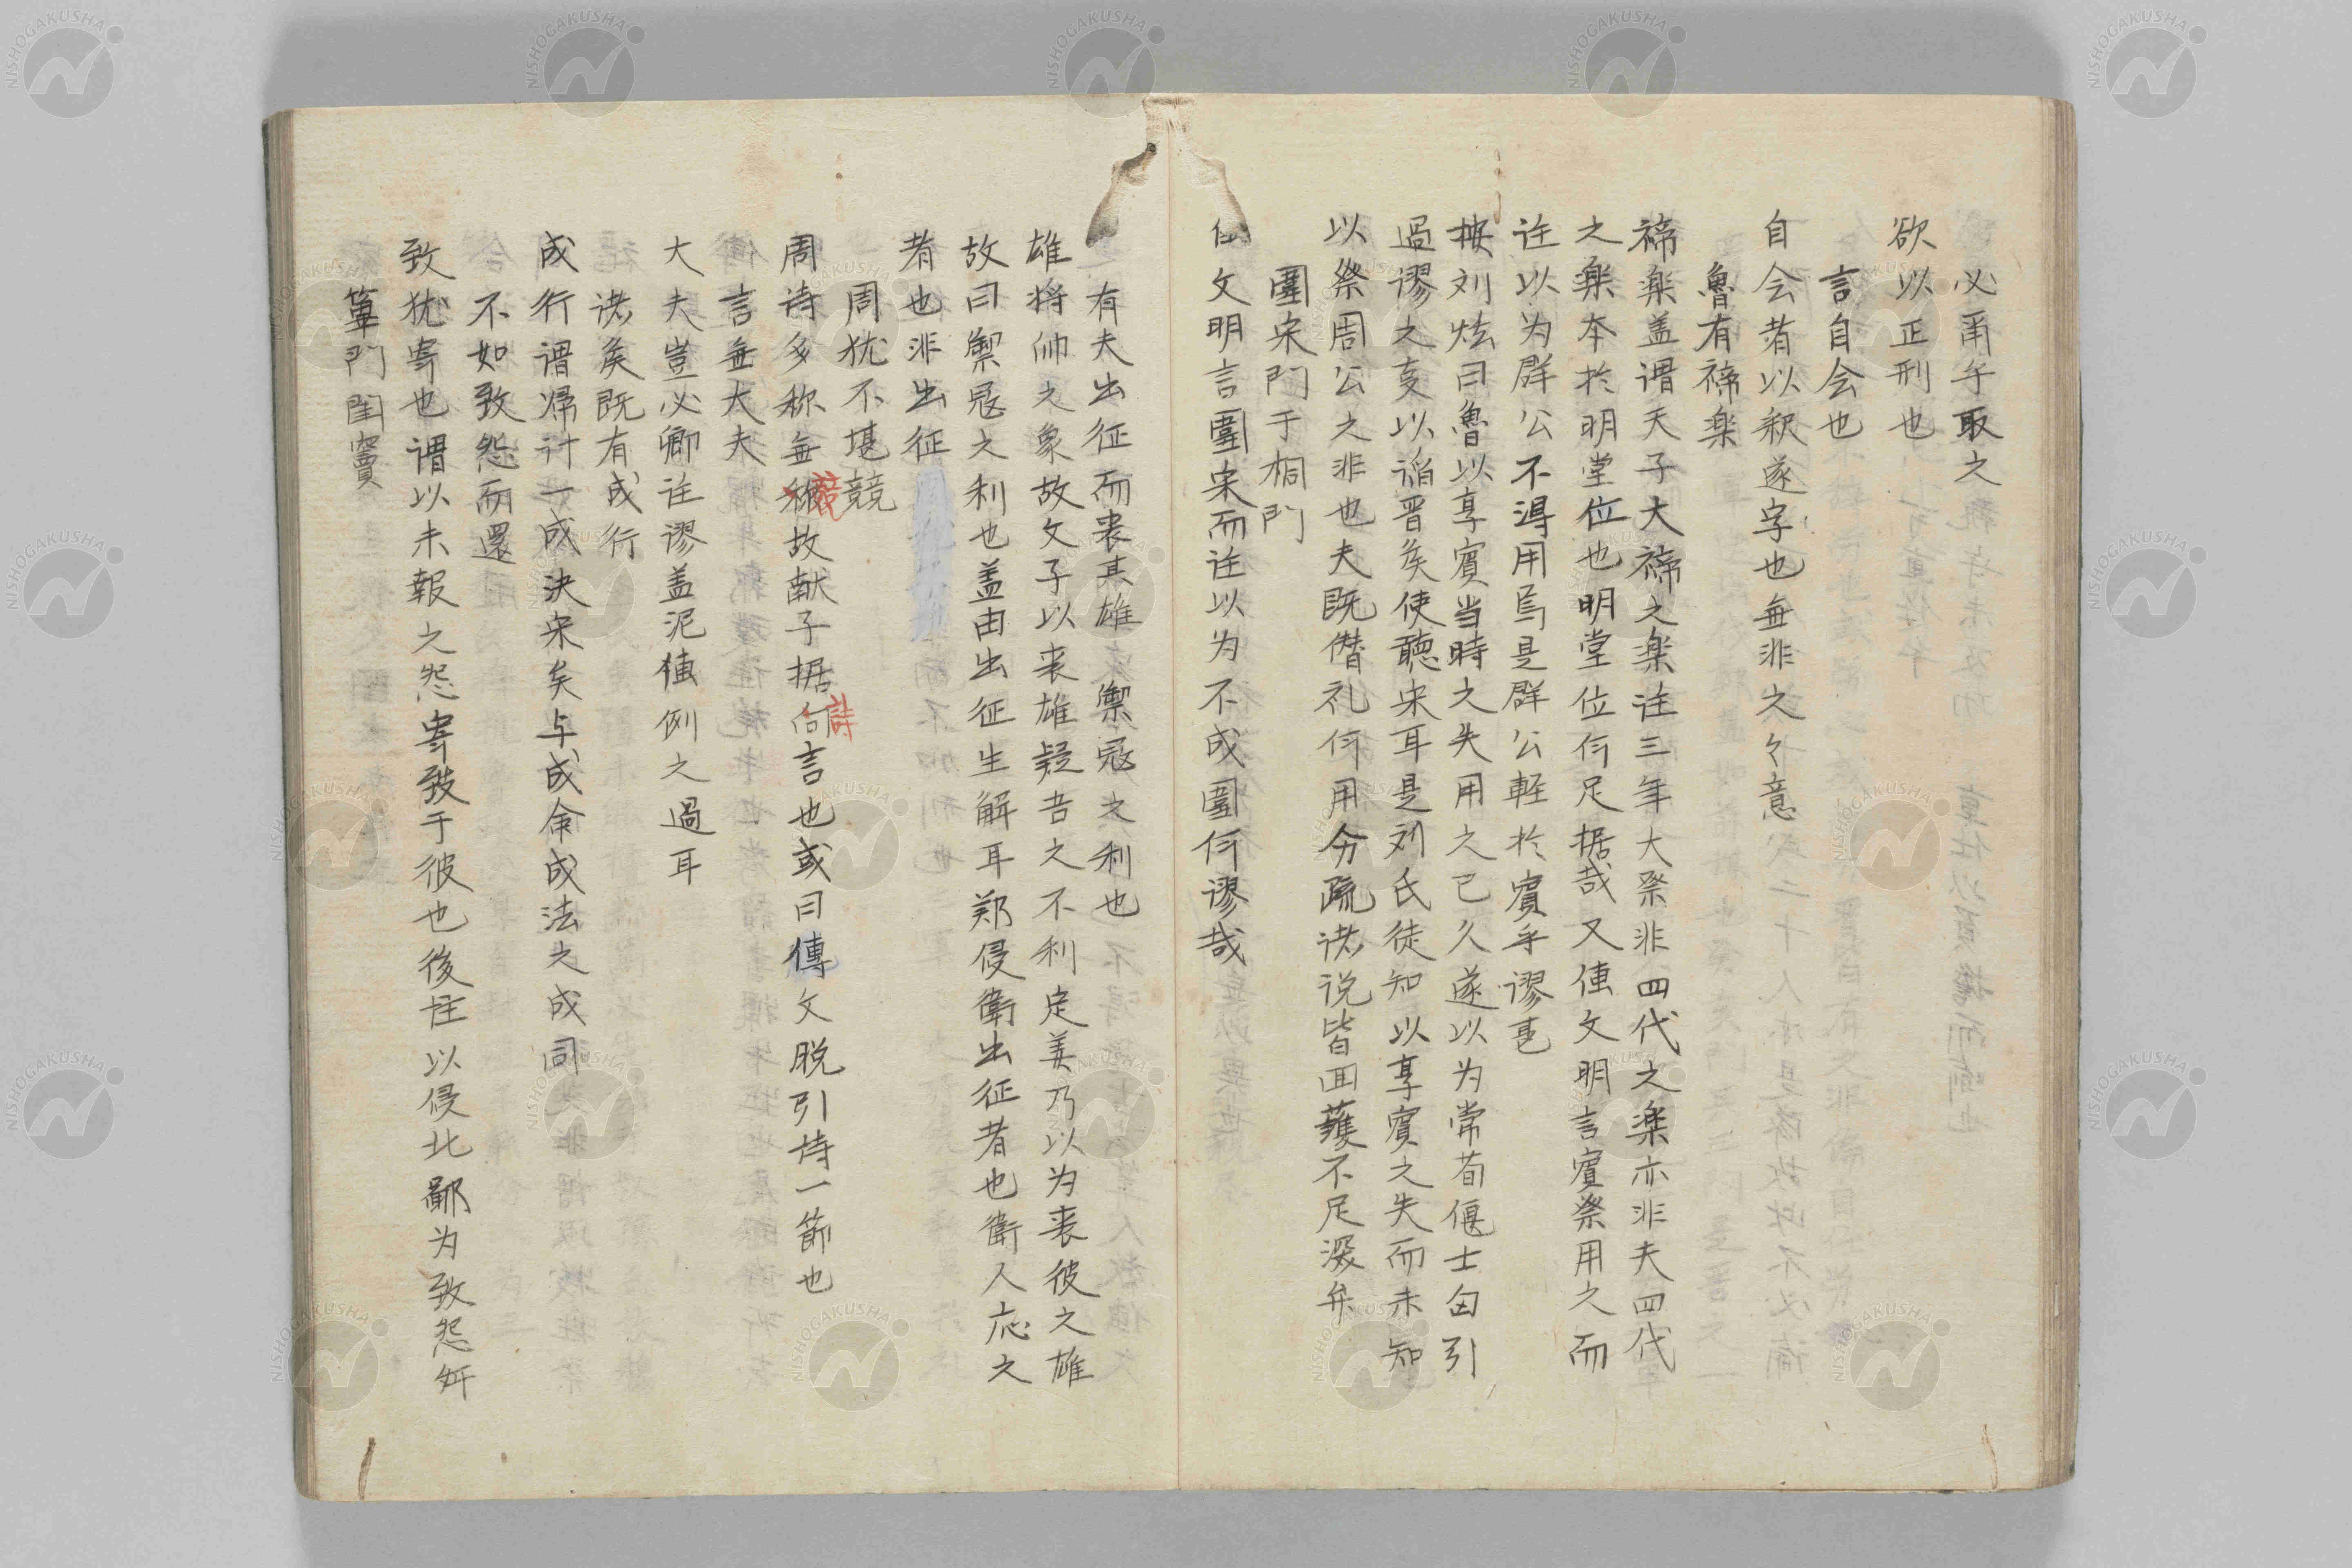 必甬乎取之
欲以正刑也
言自会也
自会者以釈遂字也毎非之々意
魯有禘楽
禘楽盖谓天子大禘之楽注三年大祭非四代之楽亦非夫四代
之楽本於明堂位也明堂位何足据哉又傳文明言賓祭用之而
注以为群公不得用焉是群公軽於賓乎謬甚
按刘炫曰魯以享賓当時之失用之已久遂以为常荀偃士匄引
過謬之事以諂晋矦使聴宋耳是刘氏徒知以享賓之失而未知
以祭周公之非也夫既僣礼何用分疏諸説皆回護不足深弁
圍宋門于桐門
傳文明言圍宋而注以为不成圍何謬哉
有夫出征而喪其雄 禦寇之利也
雄将帅之象故文子以喪雄疑吉之不利定姜乃以为喪彼之雄
故曰禦寇之利也盖由出征生解耳郑侵衛出征者也衛人応之
者也非出征
周犹不堪競
周诗多称毎競故献子据詩言也或曰傳文脱引诗一節也
言毎大夫
大夫豈必卿注謬盖泥傳例之過耳
諸矦既有成行
成行谓帰计一成決宋矣与成命成法之成同
不如致怨而還
致犹寄也谓以未報之怨寄致于彼也後注以侵北鄙为致怨奸
篳門閨竇